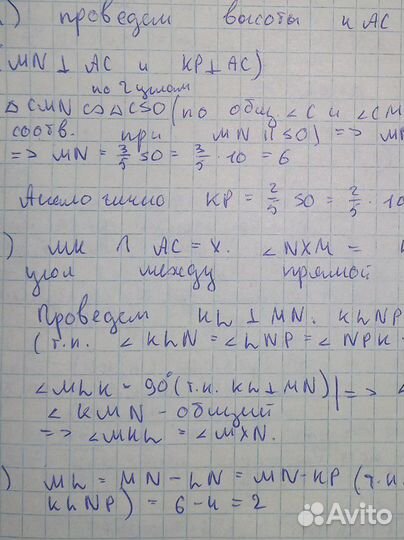 ) проведем высоты к АС
(MN ⊥ AC и KP ⊥ AC)
по 2 углам
△CMN ∽ △CSO (по общ. ∠C и ∠CM
соотв. при MN || SO) => M
=> MN = 3/5 SO = 3/5 · 10 = 6
Аналогично KP = 2/5 SO = 2/5 · 10
) MK ∩ AC = X. ∠NXM =
угол между прямой
Проведем KL ⊥ MN. KLNP
(т.к. ∠KLN = ∠LNP = ∠NPK =
∠MLK = 90° (т.к. KL ⊥ MN) | => ∠
∠KMN - общий
=> ∠MKL = ∠MXN.
) ML = MN - LN = MN - KP (т.к.
KLNP) = 6 - 4 = 2
Avito